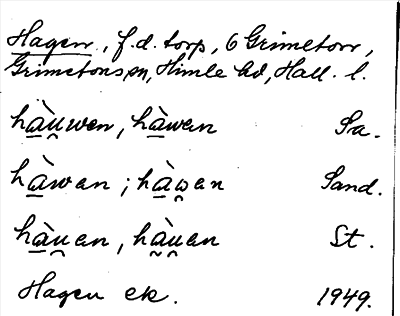 Hagen, f.d. torp, 6 Grimeton,
Grimetons sn, Himle hd, Hall. l.
hàu̯wen, hàwen Sa.
hàwan; hàw̯an Sand.
hàu̯an, hàu̯an St.
Hagen ek. 1949.